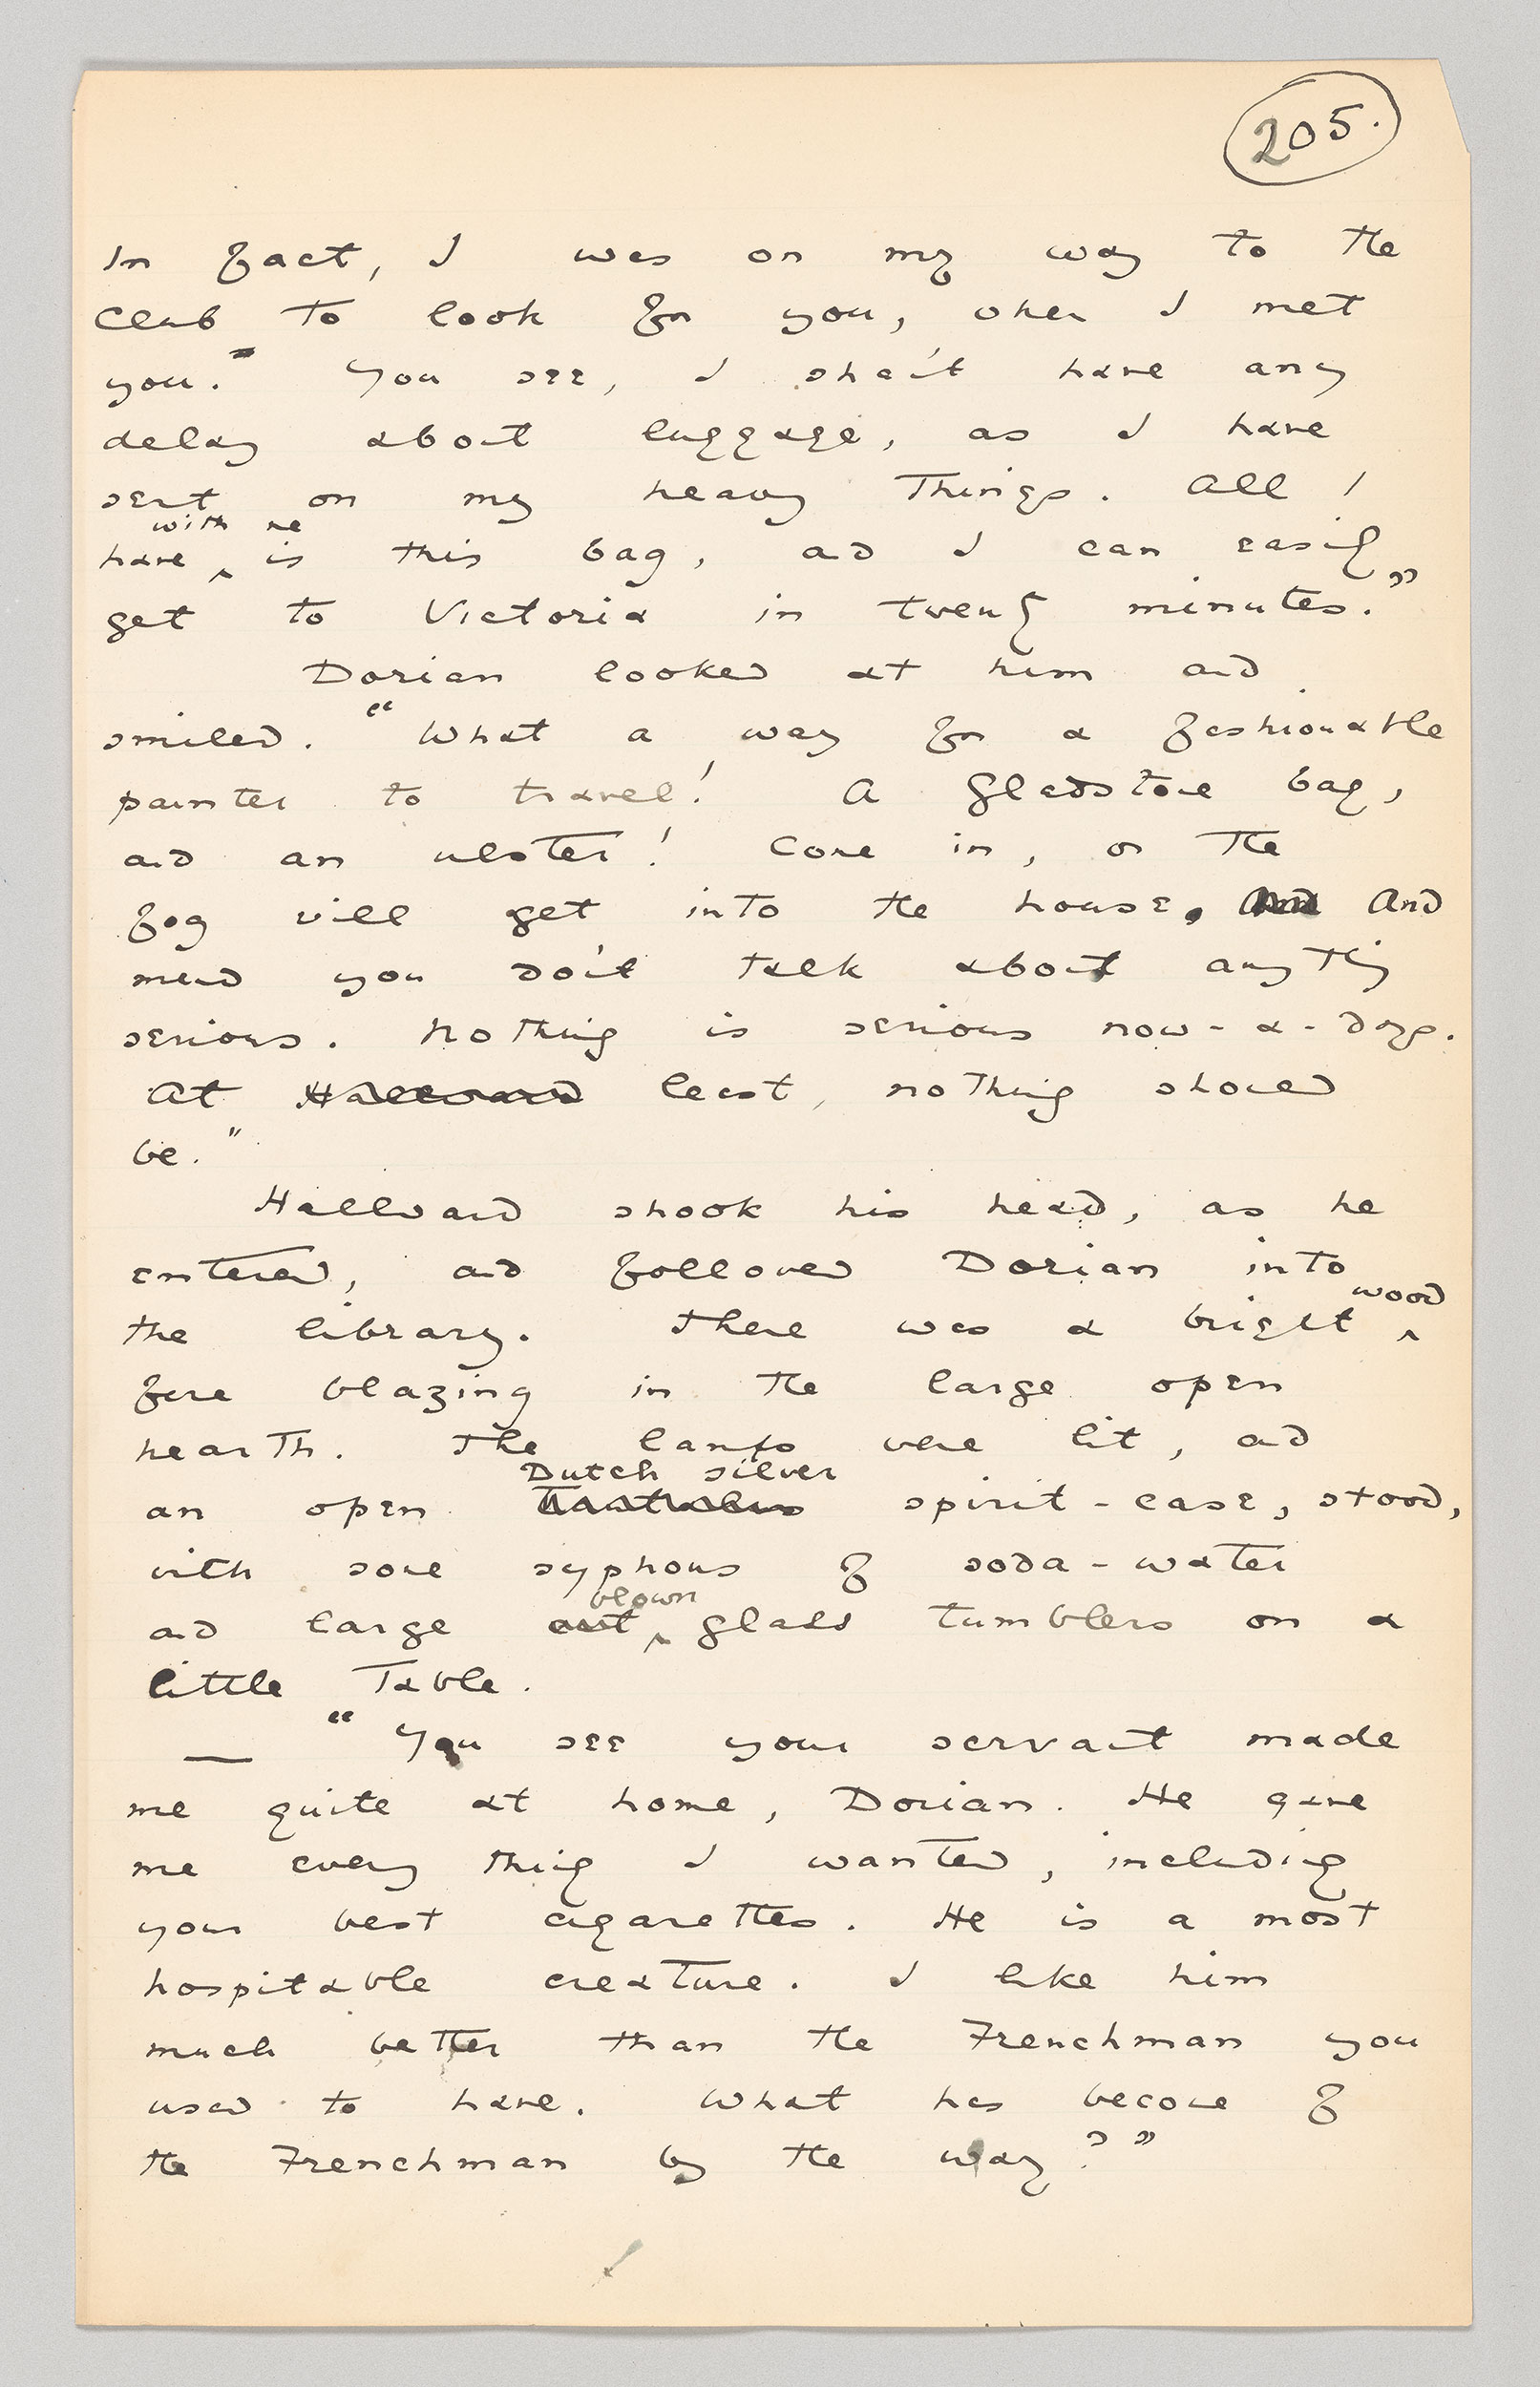 205.
In fact, I was on my way to the
club to look for you, when I met
you." You see, I shan't have any
delay about luggage, as I have
sent on my heavy things. All I
with me
have ^ is this bag, and I can easily
get to Victoria in twenty minutes."
Dorian looked at him and
smiled. "What a way for a fashionable
painter to travel! A Gladstone bag,
and an ulster! Come in, or the
fog will get into the house. And And
mind you don't talk about anything
serious. Nothing is serious now-a-days.
At Hallward least, nothing should
be."
Hallward shook his head, as he
entered, and followed Dorian into
wood
the library. There was a bright ^
fire blazing in the large open
hearth. The lamps were lit, and
Dutch silver
an open Tantalus spirit-case, stood,
with some syphons of soda-water
blown
and large cut ^ glass tumblers on a
little table.
— "You see your servant made
me quite at home, Dorian. He gave
me every thing I wanted, including
your best cigarettes. He is a most
hospitable creature. I like him
much better than the Frenchman you
used to have. What has become of
the Frenchman by the way?"